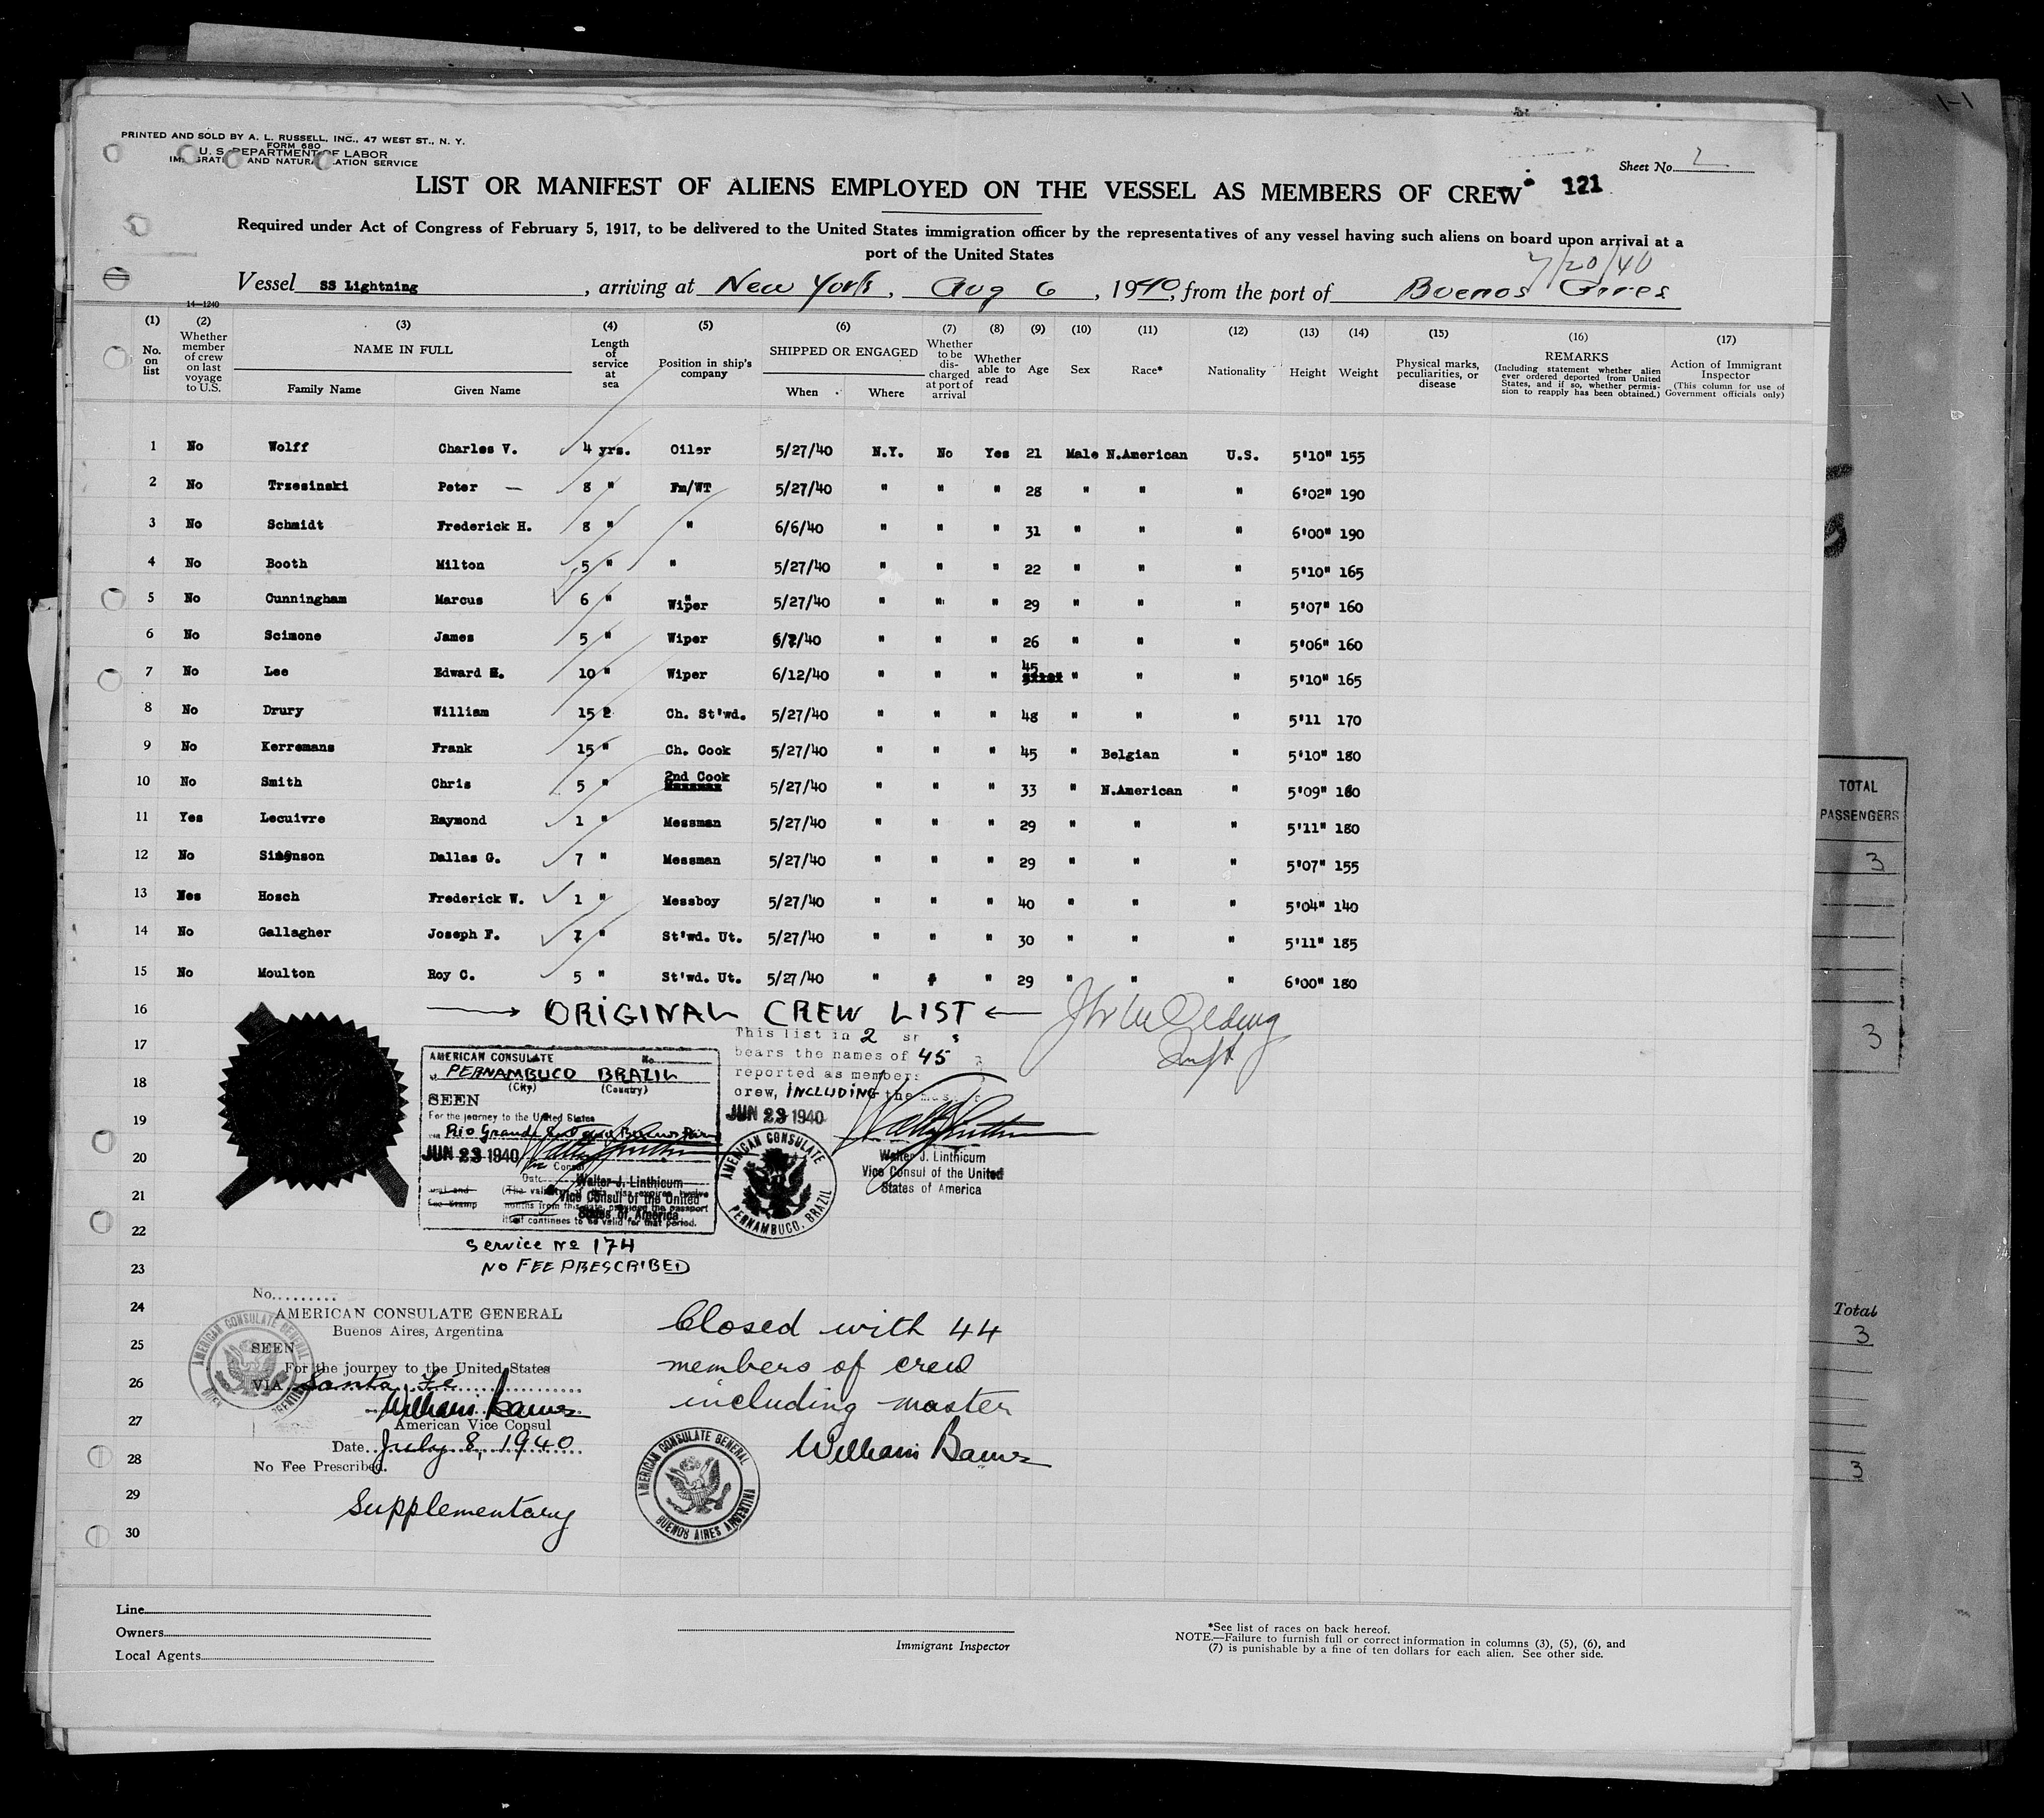 1-1
PRINTED AND SOLD BY A. L. RUSSELL, INC., 47 WEST ST., N. Y.
FORM 680
U. S. DEPARTMENT OF LABOR
IMMIGRATION AND NATURALIZATION SERVICE
Sheet No. 2
LIST OR MANIFEST OF ALIENS EMPLOYED ON THE VESSEL AS MEMBERS OF CREW 121
Required under Act of Congress of February 5, 1917, to be delivered to the United States immigration officer by the representatives of any vessel having such aliens on board upon arrival at a
port of the United States
7/20/40
Vessel SS Lightning, arriving at New York, Aug 6, 1940, from the port of Buenos Aires
14-1240
(1) No. on list
(2) Whether member of crew on last voyage to U.S.
(3) NAME IN FULL Family Name Given Name
(4) Length of service at sea
(5) Position in ship's company
(6) SHIPPED OR ENGAGED When Where
(7) Whether to be discharged at port of arrival
(8) Whether able to read
(9) Age
(10) Sex
(11) Race*
(12) Nationality
(13) Height
(14) Weight
(15) Physical marks, peculiarities, or disease
(16) REMARKS (Including statement whether alien ever ordered deported from United States, and if so, whether permission to reapply has been obtained.)
(17) Action of Immigrant Inspector (This column for use of Government officials only)
1 No Wolff Charles V. 4 yrs. Oiler 5/27/40 N.Y. No Yes 21 Male N.American U.S. 5'10" 155
2 No Trzesinski Peter — 8 " Fm/WT 5/27/40 " " " 28 " " " 6'02" 190
3 No Schmidt Frederick H. 8 " " 6/6/40 " " " 31 " " " 6'00" 190
4 No Booth Milton 5 " " 5/27/40 " " " 22 " " " 5'10" 165
5 No Cunningham Marcus 6 " Wiper 5/27/40 " " " 29 " " " 5'07" 160
6 No Scimone James 5 " Wiper 6/7/40 " " " 26 " " " 5'06" 160
7 No Lee Edward E. 10 " Wiper 6/12/40 " " " 45 " " " 5'10" 165
8 No Drury William 15 2 Ch. St'wd. 5/27/40 " " " 48 " " " 5'11 170
9 No Kerremans Frank 15 " Ch. Cook 5/27/40 " " " 45 " Belgian " 5'10" 180
10 No Smith Chris 5 " 2nd Cook 5/27/40 " " " 33 " N.American " 5'09" 160
11 Yes Lecuivre Raymond 1 " Messman 5/27/40 " " " 29 " " " 5'11" 180
12 No Simonson Dallas G. 7 " Messman 5/27/40 " " " 29 " " " 5'07" 155
13 Nes Hosch Frederick W. 1 " Messboy 5/27/40 " " " 40 " " " 5'04" 140
14 No Gallagher Joseph F. 7 " St'wd. Ut. 5/27/40 " " " 30 " " " 5'11" 185
15 No Moulton Roy C. 5 " St'wd. Ut. 5/27/40 " " " 29 " " " 6'00" 180
16
17
18
19
20
21
22
23
24
25
26
27
28
29
30
→ ORIGINAL CREW LIST ←
This list in 2
bears the names of 45
reported as members
crew, INCLUDING the
JUN 23 1940
Walter J. Linthicum
Vice Consul of the United
States of America
AMERICAN CONSULATE
PERNAMBUCO, BRAZIL
AMERICAN CONSULATE No.
PERNAMBUCO BRAZIL
(City) (Country)
SEEN
For the journey to the United States
JUN 23 1940
Consul
Date
Walter J. Linthicum
Vice Consul of the United
States of America
months from this date, provided the passport
itself continues to be valid for that period.
Service No 174
NO FEE PRESCRIBED
No.
AMERICAN CONSULATE GENERAL
Buenos Aires, Argentina
SEEN
For the journey to the United States
VIA Santa Fe
American Vice Consul
Date July 8, 1940
No Fee Prescribed.
Supplementary
Closed with 44
members of crew
including master
AMERICAN CONSULATE GENERAL
BUENOS AIRES ARGENTINA
Line
Owners
Local Agents
Immigrant Inspector
*See list of races on back hereof.
NOTE.—Failure to furnish full or correct information in columns (3), (5), (6), and
(7) is punishable by a fine of ten dollars for each alien. See other side.
TOTAL
PASSENGERS
3
3
Total
3
3